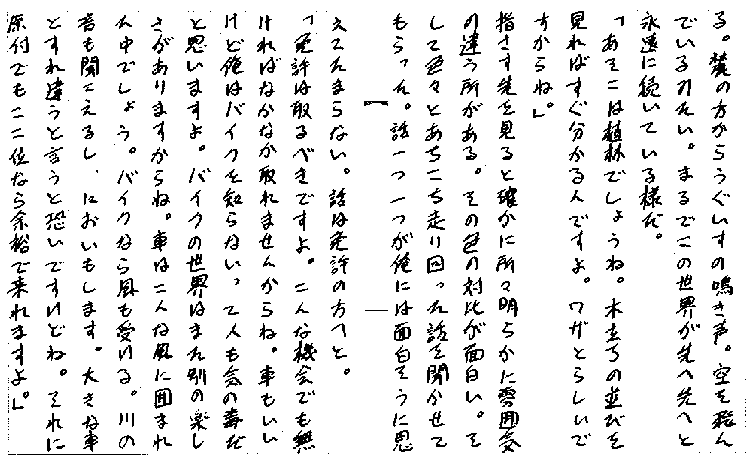 る。麓の方からうぐいすの鳴き声。空を飛ん
でいるみたい。まるでこの世界が先へ先へと
永遠に続いている様だ。
「あそこは植林でしょうね。木立ちの並びを
見ればすぐ分かるんですよ。ワザとらしいで
すからね。」
指さす先を見ると確かに所々明らかに雰囲気
の違う所がある。その色の対比が面白い。そ
して色々とあちこち走り回った話を聞かせて
もらった。話一つ一つが俺には面白そうに思
えてたまらない。話は免許の方へと。
「免許は取るべきですよ。こんな機会でも無
ければなかなか取れませんからね。車もいい
けど俺はバイクを知らない人も気の毒だ
と思いますよ。バイクの世界はまた別の楽し
さがありますからね。車はこんな風に囲まれ
ん中でしょう。バイクなら風も受ける。川の
音も聞こえるし、においもします。大きな車
とすれ違うと言うと恐いですけどね。それに
原付でもここ位なら余裕で来れますよ。」